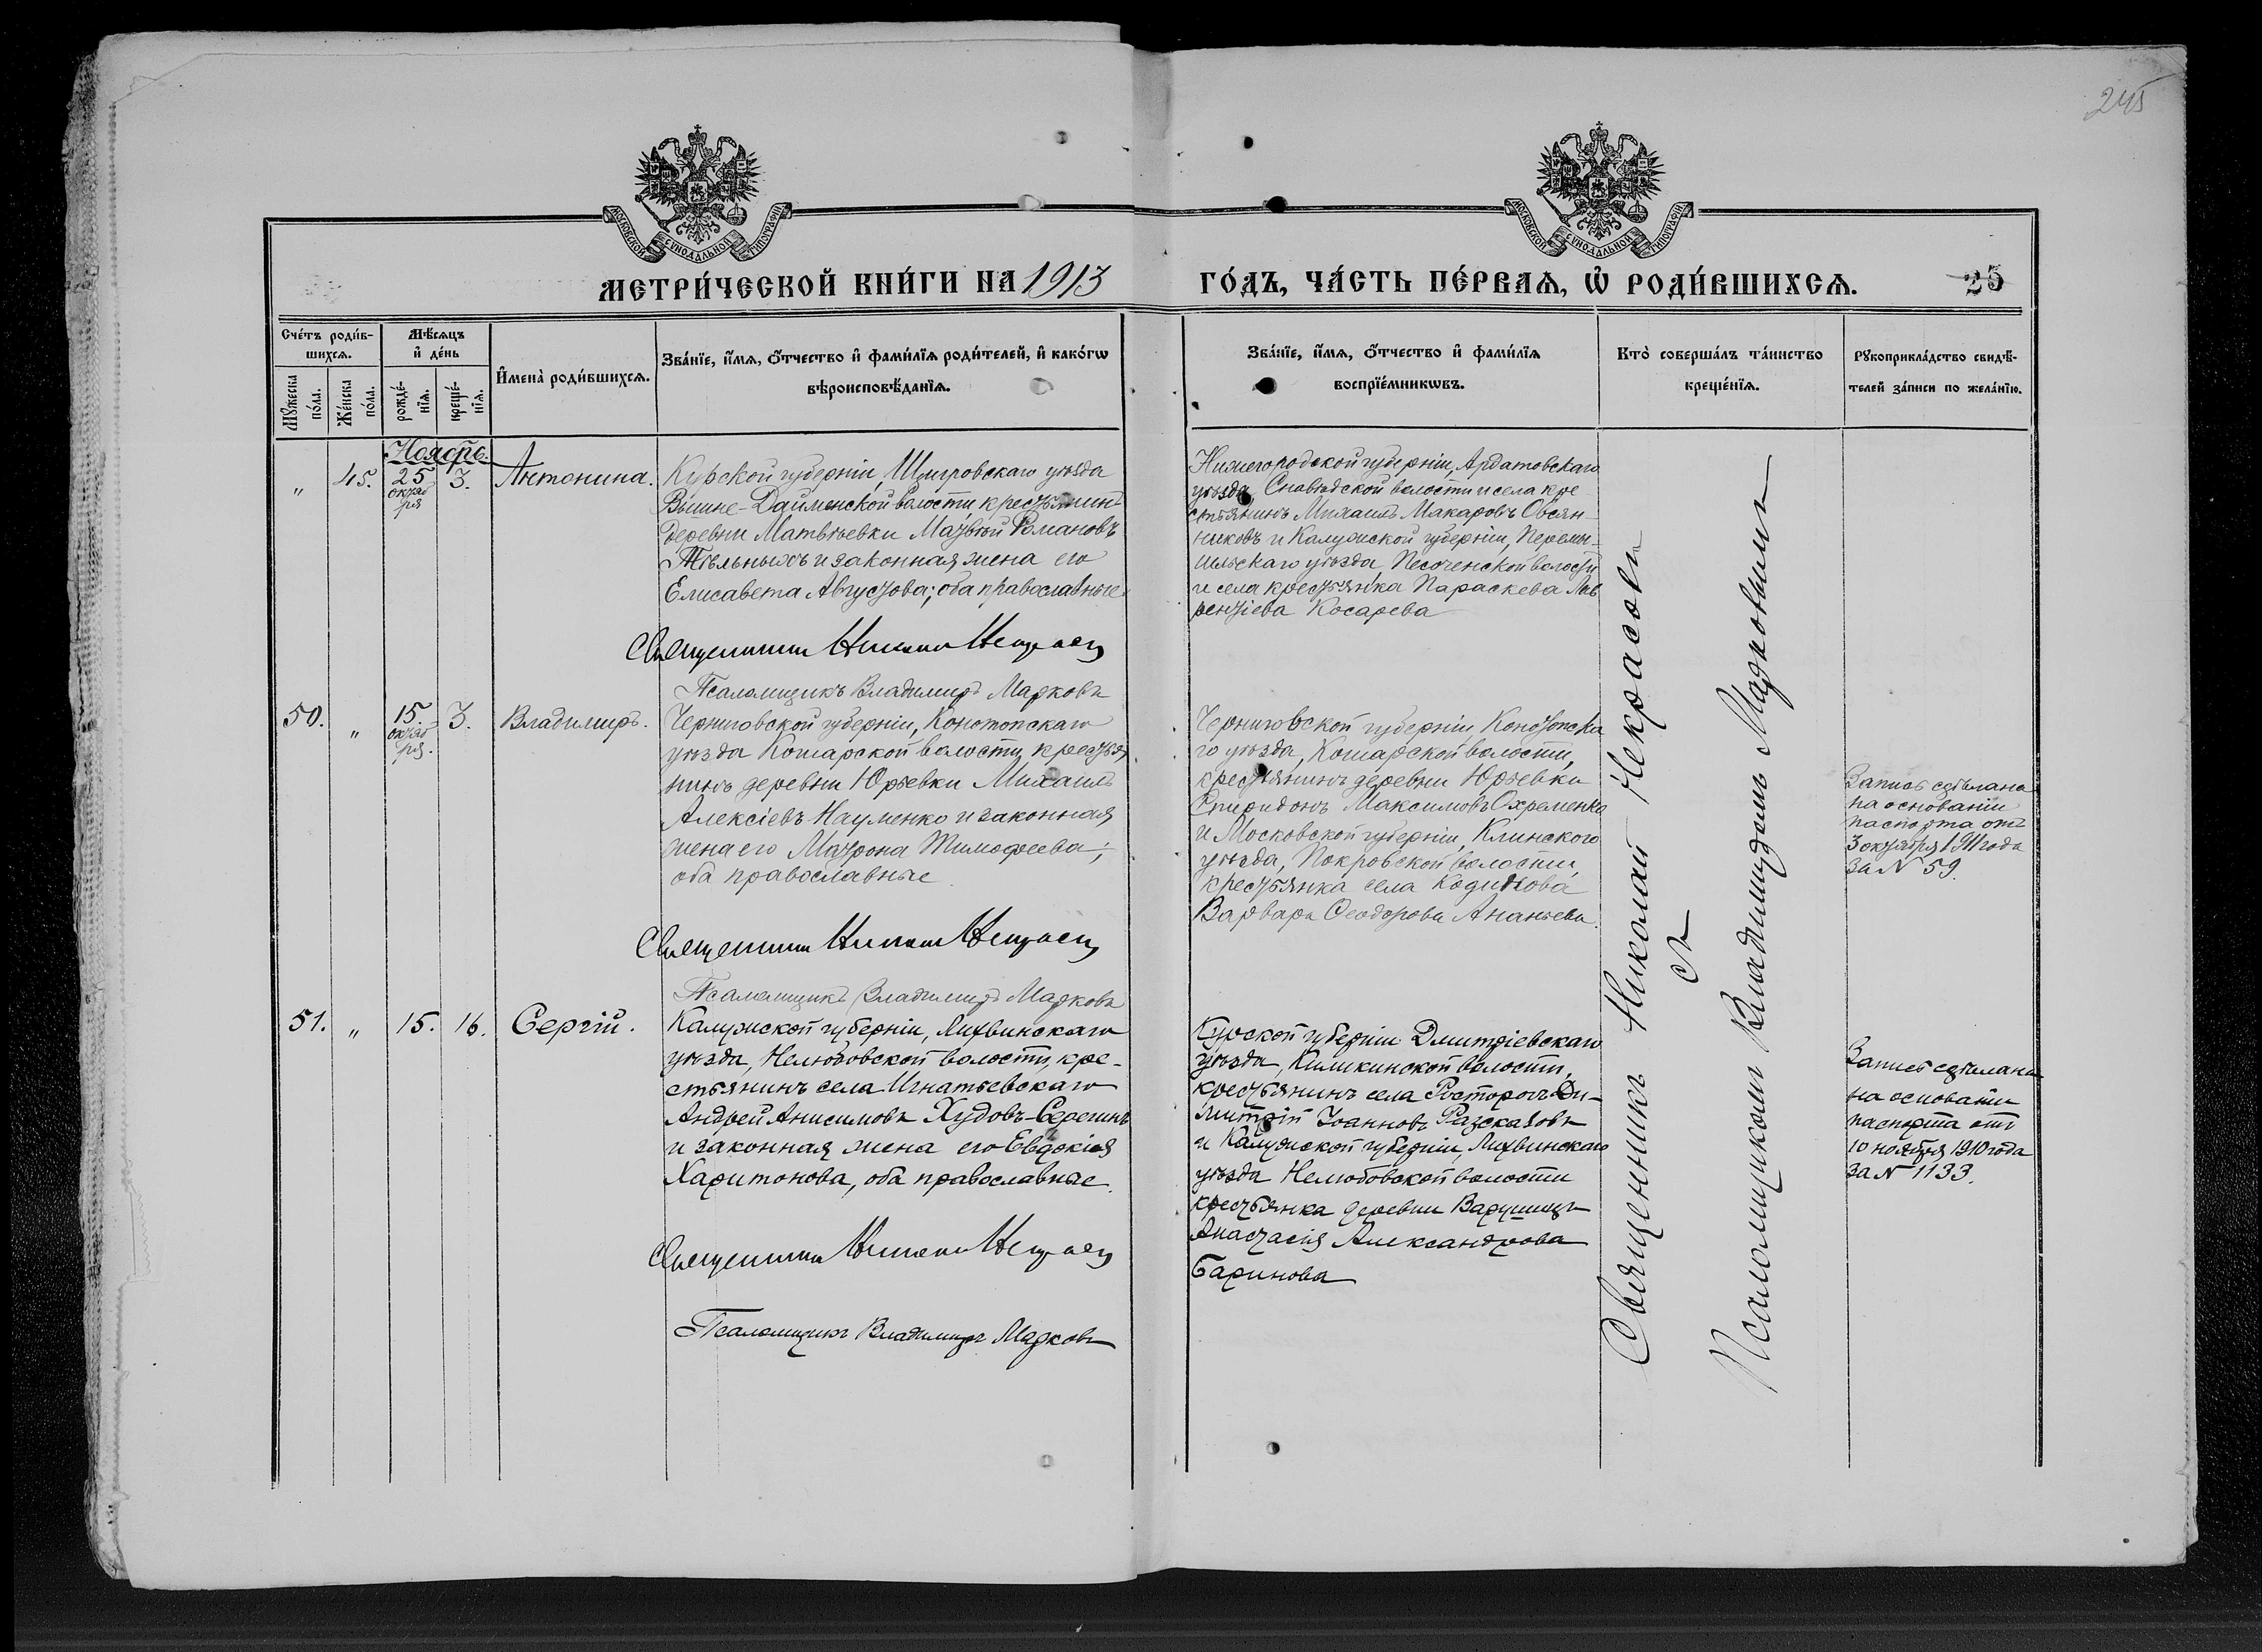 245
МОСКОВСКОЙ СѴНОДАЛЬНОЙ ТИПОГРАФІИ
МОСКОВСКОЙ СѴНОДАЛЬНОЙ ТИПОГРАФІИ
МЕТРИ́ЧЕСКОЙ КНИ́ГИ НА 1913 ГО́ДЪ, ЧА́СТЬ ПЕ́РВАѦ, Ѡ҆ РОДИ́ВШИХСѦ. 25
Сче́тъ роди́в-
шихсѧ.
Мꙋ́жеска по́ла.
Же́нска по́ла.
Мѣ́сѧцъ и҆ де́нь
рожде́-
нїѧ.
креще́-
нїѧ.
И҆мена̀ роди́вшихсѧ.
Зва́нїе, и҆́мѧ, ѻ҆́тчество и҆ фами́лїѧ роди́телей, и҆ како́гѡ
вѣроисповѣ́данїѧ.
Зва́нїе, и҆́мѧ, ѻ҆́тчество и҆ фами́лїѧ
воспрїе́мникѡвъ.
Кто̀ соверша́лъ та́инство
креще́нїѧ.
Рꙋкоприкла́дство свидѣ́-
телей за́писи по жела́нїю.
Ноябрь.
„ 45. 25 октяб
ря 3. Антонина.
Курской губерніи, Щигровскаго уѣзда
Вышне-Дайменской волости крестьянинъ
деревни Матвѣевки Матвѣй Романовъ
и законная жена его
Елисавета Августова; оба православные
Священникъ Николай Некрасовъ
Псаломщикъ Владимиръ Марковъ
Нижегородской губерніи, Ардатовскаго
уѣзда, волости и села кре-
стьянинъ Михаилъ Макаровъ Овсян-
никовъ и Калужской губерніи, Перемы-
шльскаго уѣзда, Песоченской волости
и села крестьянка Параскева Лав
рентіева Косарева
50. „ 15. октяб
ря. 3. Владимиръ.
Черниговской губерніи, Конотопскаго
уѣзда Кошарской волости, крестья
нинъ деревни Юрьевки Михаилъ
Алексіевъ Науменко и законная
жена его Матрона Тимофеева;
оба православные
Священникъ Николай Некрасовъ
Псаломщикъ Владимиръ Марковъ
Черниговской губерніи, Конотопска
го уѣзда, Кошарской волости,
крестьянинъ деревни Юрьевки
Спиридонъ Максимовъ Охременко
и Московской губерніи, Клинского
уѣзда, Покровской волости,
крестьянка села
Варвара Ѳеодорова Ананьева.
Запись сдѣлана
на основаніи
паспорта отъ
3 октября 1911 года
за N 59.
51. „ 15. 16. Сергій.
Калужской губерніи, Лихвинскаго
уѣзда, Нелюбовской волости, кре-
стьянинъ села Игнатьевскаго
Андрей Анисимовъ Худовъ-Серегинъ
и законная жена его Евдокія
Харитонова, оба православные.
Священникъ Николай Некрасовъ
Псаломщикъ Владимиръ Марковъ
Курской губерніи Дмитріевскаго
уѣзда, волости,
крестьянинъ села Ди-
митрій Іоанновъ Разсказовъ
и Калужской губерніи, Лихвинскаго
уѣзда Нелюбовской волости
крестьянка деревни
Анастасія Александрова
Баринова
Запись сдѣлана
на основаніи
паспорта отъ
10 ноября 1910 года
за N 1133.
Священникъ Николай Некрасовъ
съ
Псаломщикомъ Владимиромъ Марковымъ